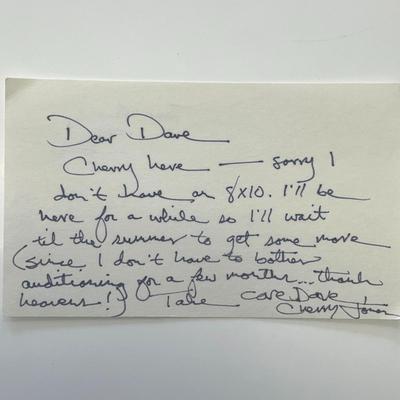 Dear Dave
Cherry here — sorry I
don't have an 8x10. I'll be
here for a while so I'll wait
til the summer to get some more
(since I don't have to bother
auditioning for a few months... thank
heavens!) Take care Dave,
Cherry Jones